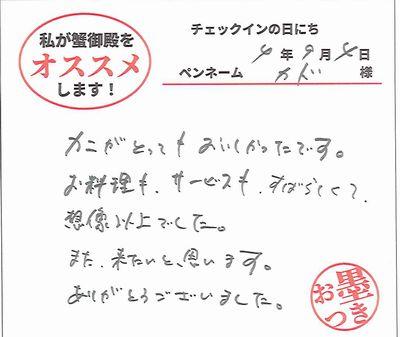 私が蟹御殿を
オススメ
します!
チェックインの日にち
4年9月4日
ペンネーム カド 様
カニがとってもおいしかったです。
お料理も、サービスも、すばらしくて、
想像以上でした。
また、来たいと思います。
ありがとうございました。
お墨つき